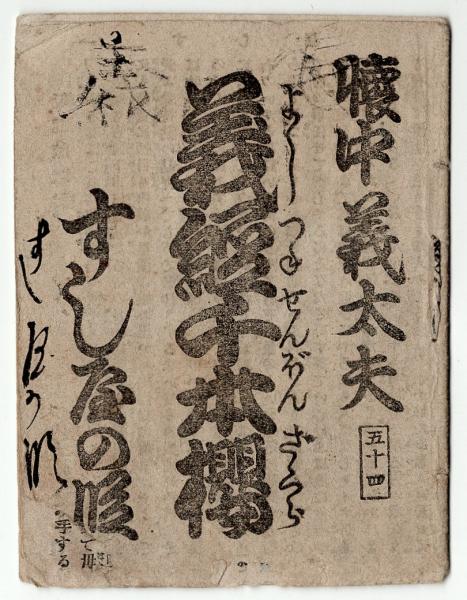 懐中義太夫
五十四
よしつねせんぼんざくら
義經千本櫻
すし屋の段
すしやの段
義